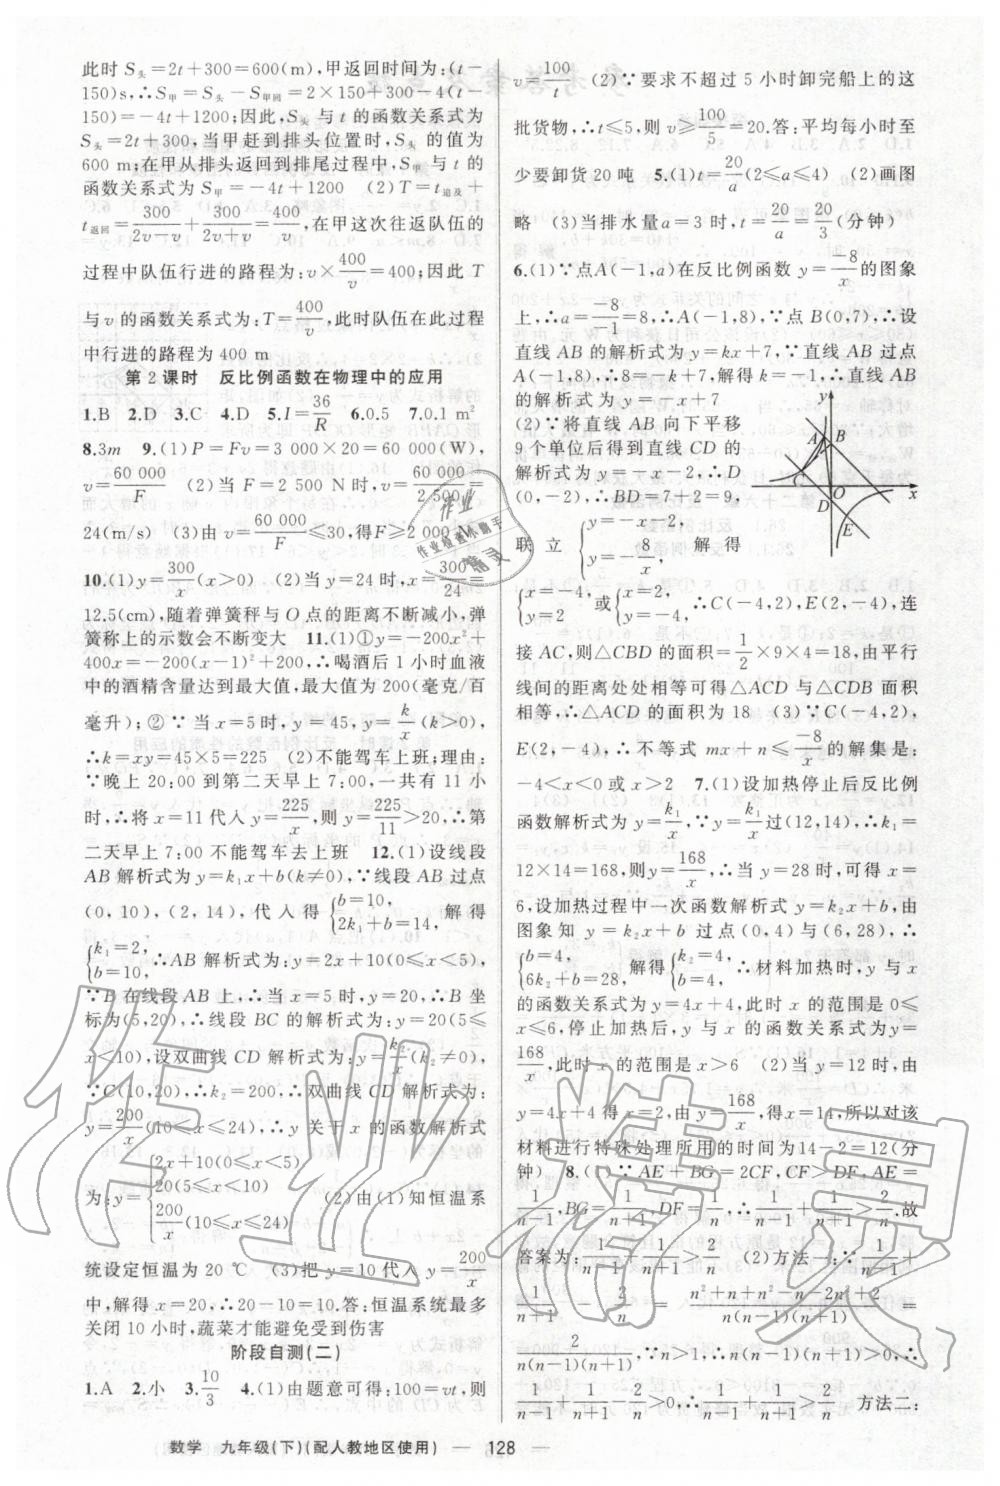 此时 S头=2t+300=600(m),甲返回时间为:(t-
150)s,∴S甲=S头-S甲回=2×150+300-4(t-
150)=-4t+1200;因此,S头 与 t 的函数关系式为
S头=2t+300,当甲赶到排头位置时,S头 的值为
600 m;在甲从排头返回到排尾过程中,S甲 与 t 的
函数关系式为 S甲=-4t+1200 (2)T=t追及+
t返回=300/(2v-v)+300/(2v+v)=400/v,在甲这次往返队伍的
过程中队伍行进的路程为:v×400/v=400;因此 T
与 v 的函数关系式为:T=400/v,此时队伍在此过程
中行进的路程为 400 m
第 2 课时 反比例函数在物理中的应用
1.B 2.D 3.C 4.D 5.I=36/R 6.0.5 7.0.1 m²
8.3m 9.(1)P=Fv=3 000×20=60 000(W),
v=60 000/F (2)当 F=2 500 N时,v=60 000/2 500=
24(m/s) (3)由 v=60 000/F≤30,得F≥2 000 N
10.(1)y=300/x(x>0) (2)当 y=24 时,x=300/24=
12.5(cm),随着弹簧秤与 O 点的距离不断减小,弹
簧称上的示数会不断变大 11.(1)①y=-200x²+
400x=-200(x-1)²+200,∴喝酒后 1 小时血液
中的酒精含量达到最大值,最大值为 200(毫克/百
毫升);②∵当 x=5 时,y=45,y=k/x(k>0),
∴k=xy=45×5=225 (2)不能驾车上班;理由:
∵晚上 20:00 到第二天早上 7:00,一共有 11 小
时,∴将 x=11 代入 y=225/x,则 y=225/11>20,∴第
二天早上 7:00 不能驾车去上班 12.(1)设线段
AB 解析式为 y=k₁x+b(k≠0),∵线段 AB 过点
(0,10),(2,14),代入得{b=10, 2k₁+b=14, 解得
{k₁=2, b=10, ∴AB 解析式为:y=2x+10(0≤x≤5),
∵B 在线段 AB 上,当 x=5 时,y=20,∴B 坐
标为(5,20),∴线段 BC 的解析式为:y=20(5≤
x<10),设双曲线 CD 解析式为:y=k₂/x(k₂≠0),
∵C(10,20),∴k₂=200,∴双曲线 CD 解析式为:
y=200/x(10≤x≤24),∴y 关于 x 的函数解析式
为:y={2x+10(0≤x≤5) 20(5≤x≤10) 200/x(10≤x≤24) (2)由(1)知恒温系
统设定恒温为 20 ℃ (3)把 y=10 代入 y=200/x
中,解得 x=20,∴20-10=10.答:恒温系统最多
关闭 10 小时,蔬菜才能避免受到伤害
阶段自测(二)
1.A 2.小 3.10/3 4.(1)由题意可得:100=vt,则
v=100/t (2)∵要求不超过 5 小时卸完船上的这
批货物,∴t≤5,则 v≥100/5=20.答:平均每小时至
少要卸货 20 吨 5.(1)t=20/a(2≤a≤4) (2)画图
略 (3)当排水量 a=3 时,t=20/a=20/3(分钟)
6.(1)∵点A(-1,a)在反比例函数 y=-8/x的图象
上,∴a=-8/-1=8,∴A(-1,8),∵点 B(0,7),∴设
直线 AB 的解析式为 y=kx+7,∵直线 AB 过点
A(-1,8),∴8=-k+7,解得 k=-1,∴直线 AB
的解析式为 y=-x+7
(2)∵将直线 AB 向下平移
9 个单位后得到直线 CD 的
解析式为 y=-x-2,∴D
(0,-2),∴BD=7+2=9,
联立{y=-x-2, y=-8/x, 解得
{x=-4, y=2 或{x=2, y=-4, ∴C(-4,2),E(2,-4),连
接 AC,则△CBD 的面积=1/2×9×4=18,由平行
线间的距离处处相等可得△ACD 与△CDB 面积
相等,∴△ACD 的面积为 18 (3)∵C(-4,2),
E(2,-4),∴不等式 mx+n≤-8/x的解集是:
-4<x<0 或 x>2 7.(1)设加热停止后反比例
函数解析式为 y=k₁/x,∵y=k₁/x过(12,14),∴k₁=
12×14=168,则 y=168/x,∴当 y=28 时,可得 x=
6,设加热过程中一次函数解析式 y=k₂x+b,由
图象知 y=k₂x+b 过点(0,4)与(6,28),∴
{b=4, 6k₂+b=28, 解得{k₂=4, b=4, ∴材料加热时,y 与 x
的函数关系式为 y=4x+4,此时 x 的范围是 0≤
x≤6,停止加热后,y 与 x 的函数关系式为 y=
168/x,此时 x 的范围是 x>6 (2)当 y=12 时,由
y=4x+4 得 x=2,由 y=168/x,得 x=14,所以对该
材料进行特殊处理所用的时间为14-2=12(分
钟) 8.(1)∵AE+BG=2CF,CF>DF,AE=
1/(n-1),BG=1/(n+1),DF=1/n,∴1/(n-1)+1/(n+1)>2/n.故
答案为:1/(n-1)+1/(n+1)>2/n (2)方法一:∵1/(n-1)+
1/(n+1)-2/n=(n²+n+n²-n-2n²+2)/(n(n-1)(n+1))=
2/(n(n-1)(n+1)),∵n>1,∴2/(n(n-1)(n+1))>0,∴
1/(n-1)+1/(n+1)-2/n>0,∴1/(n-1)+1/(n+1)>2/n 方法二:
y
A
B
C
O
x
D
E
数学 九年级(下)(配人教地区使用) — 128 —
作业精灵